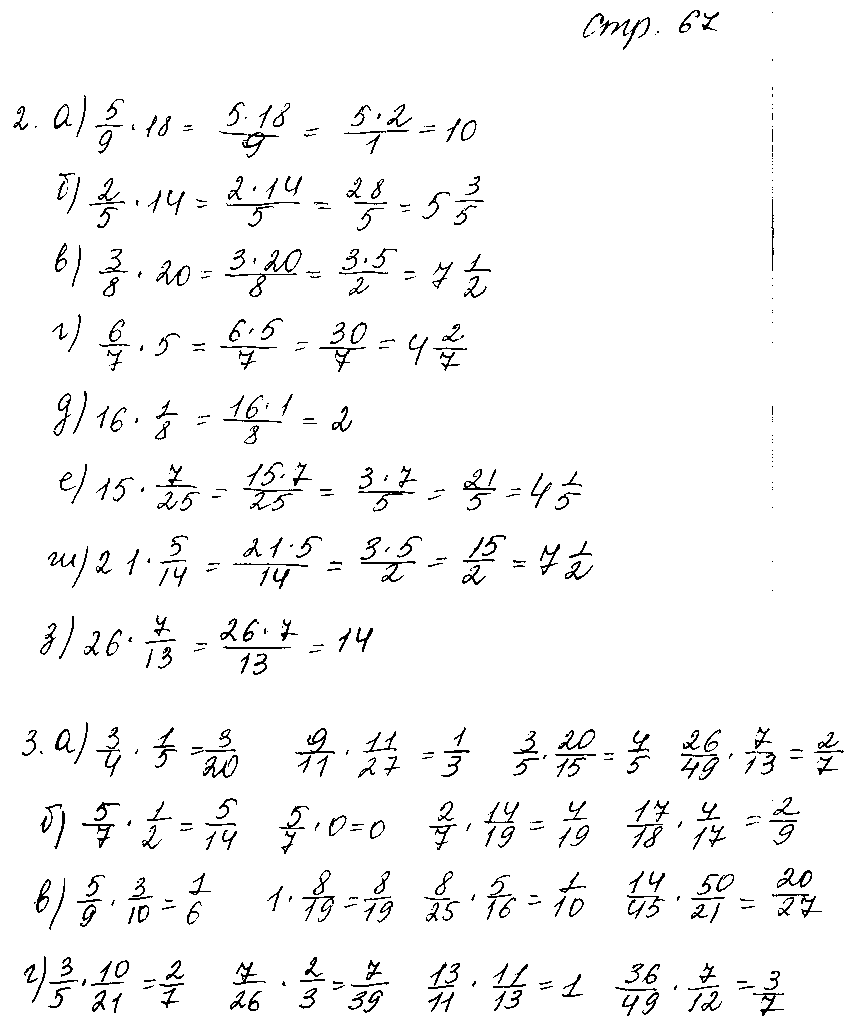 стр. 67
2. а) 5/9 · 18 = 5·18/9 = 5·2/1 = 10
б) 2/5 · 14 = 2·14/5 = 28/5 = 5 3/5
в) 3/8 · 20 = 3·20/8 = 3·5/2 = 7 1/2
г) 6/7 · 5 = 6·5/7 = 30/7 = 4 2/7
д) 16 · 1/8 = 16·1/8 = 2
е) 15 · 7/25 = 15·7/25 = 3·7/5 = 21/5 = 4 1/5
ж) 21 · 5/14 = 21·5/14 = 3·5/2 = 15/2 = 7 1/2
з) 26 · 7/13 = 26·7/13 = 14
3. а) 3/4 · 1/5 = 3/20 9/11 · 11/27 = 1/3 3/5 · 20/15 = 4/5 26/49 · 7/13 = 2/7
б) 5/7 · 1/2 = 5/14 5/7 · 0 = 0 2/7 · 14/19 = 4/19 17/18 · 4/17 = 2/9
в) 5/9 · 3/10 = 1/6 1 · 8/19 = 8/19 8/25 · 5/16 = 1/10 14/45 · 50/21 = 20/27
г) 3/5 · 10/21 = 2/7 7/26 · 2/3 = 7/39 13/11 · 11/13 = 1 36/49 · 7/12 = 3/7